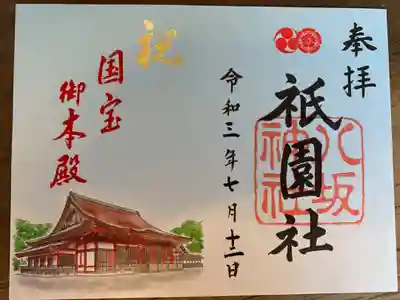 奉拝
祇園社
八坂
神社
令和三年七月十二日
祝
国宝
御本殿